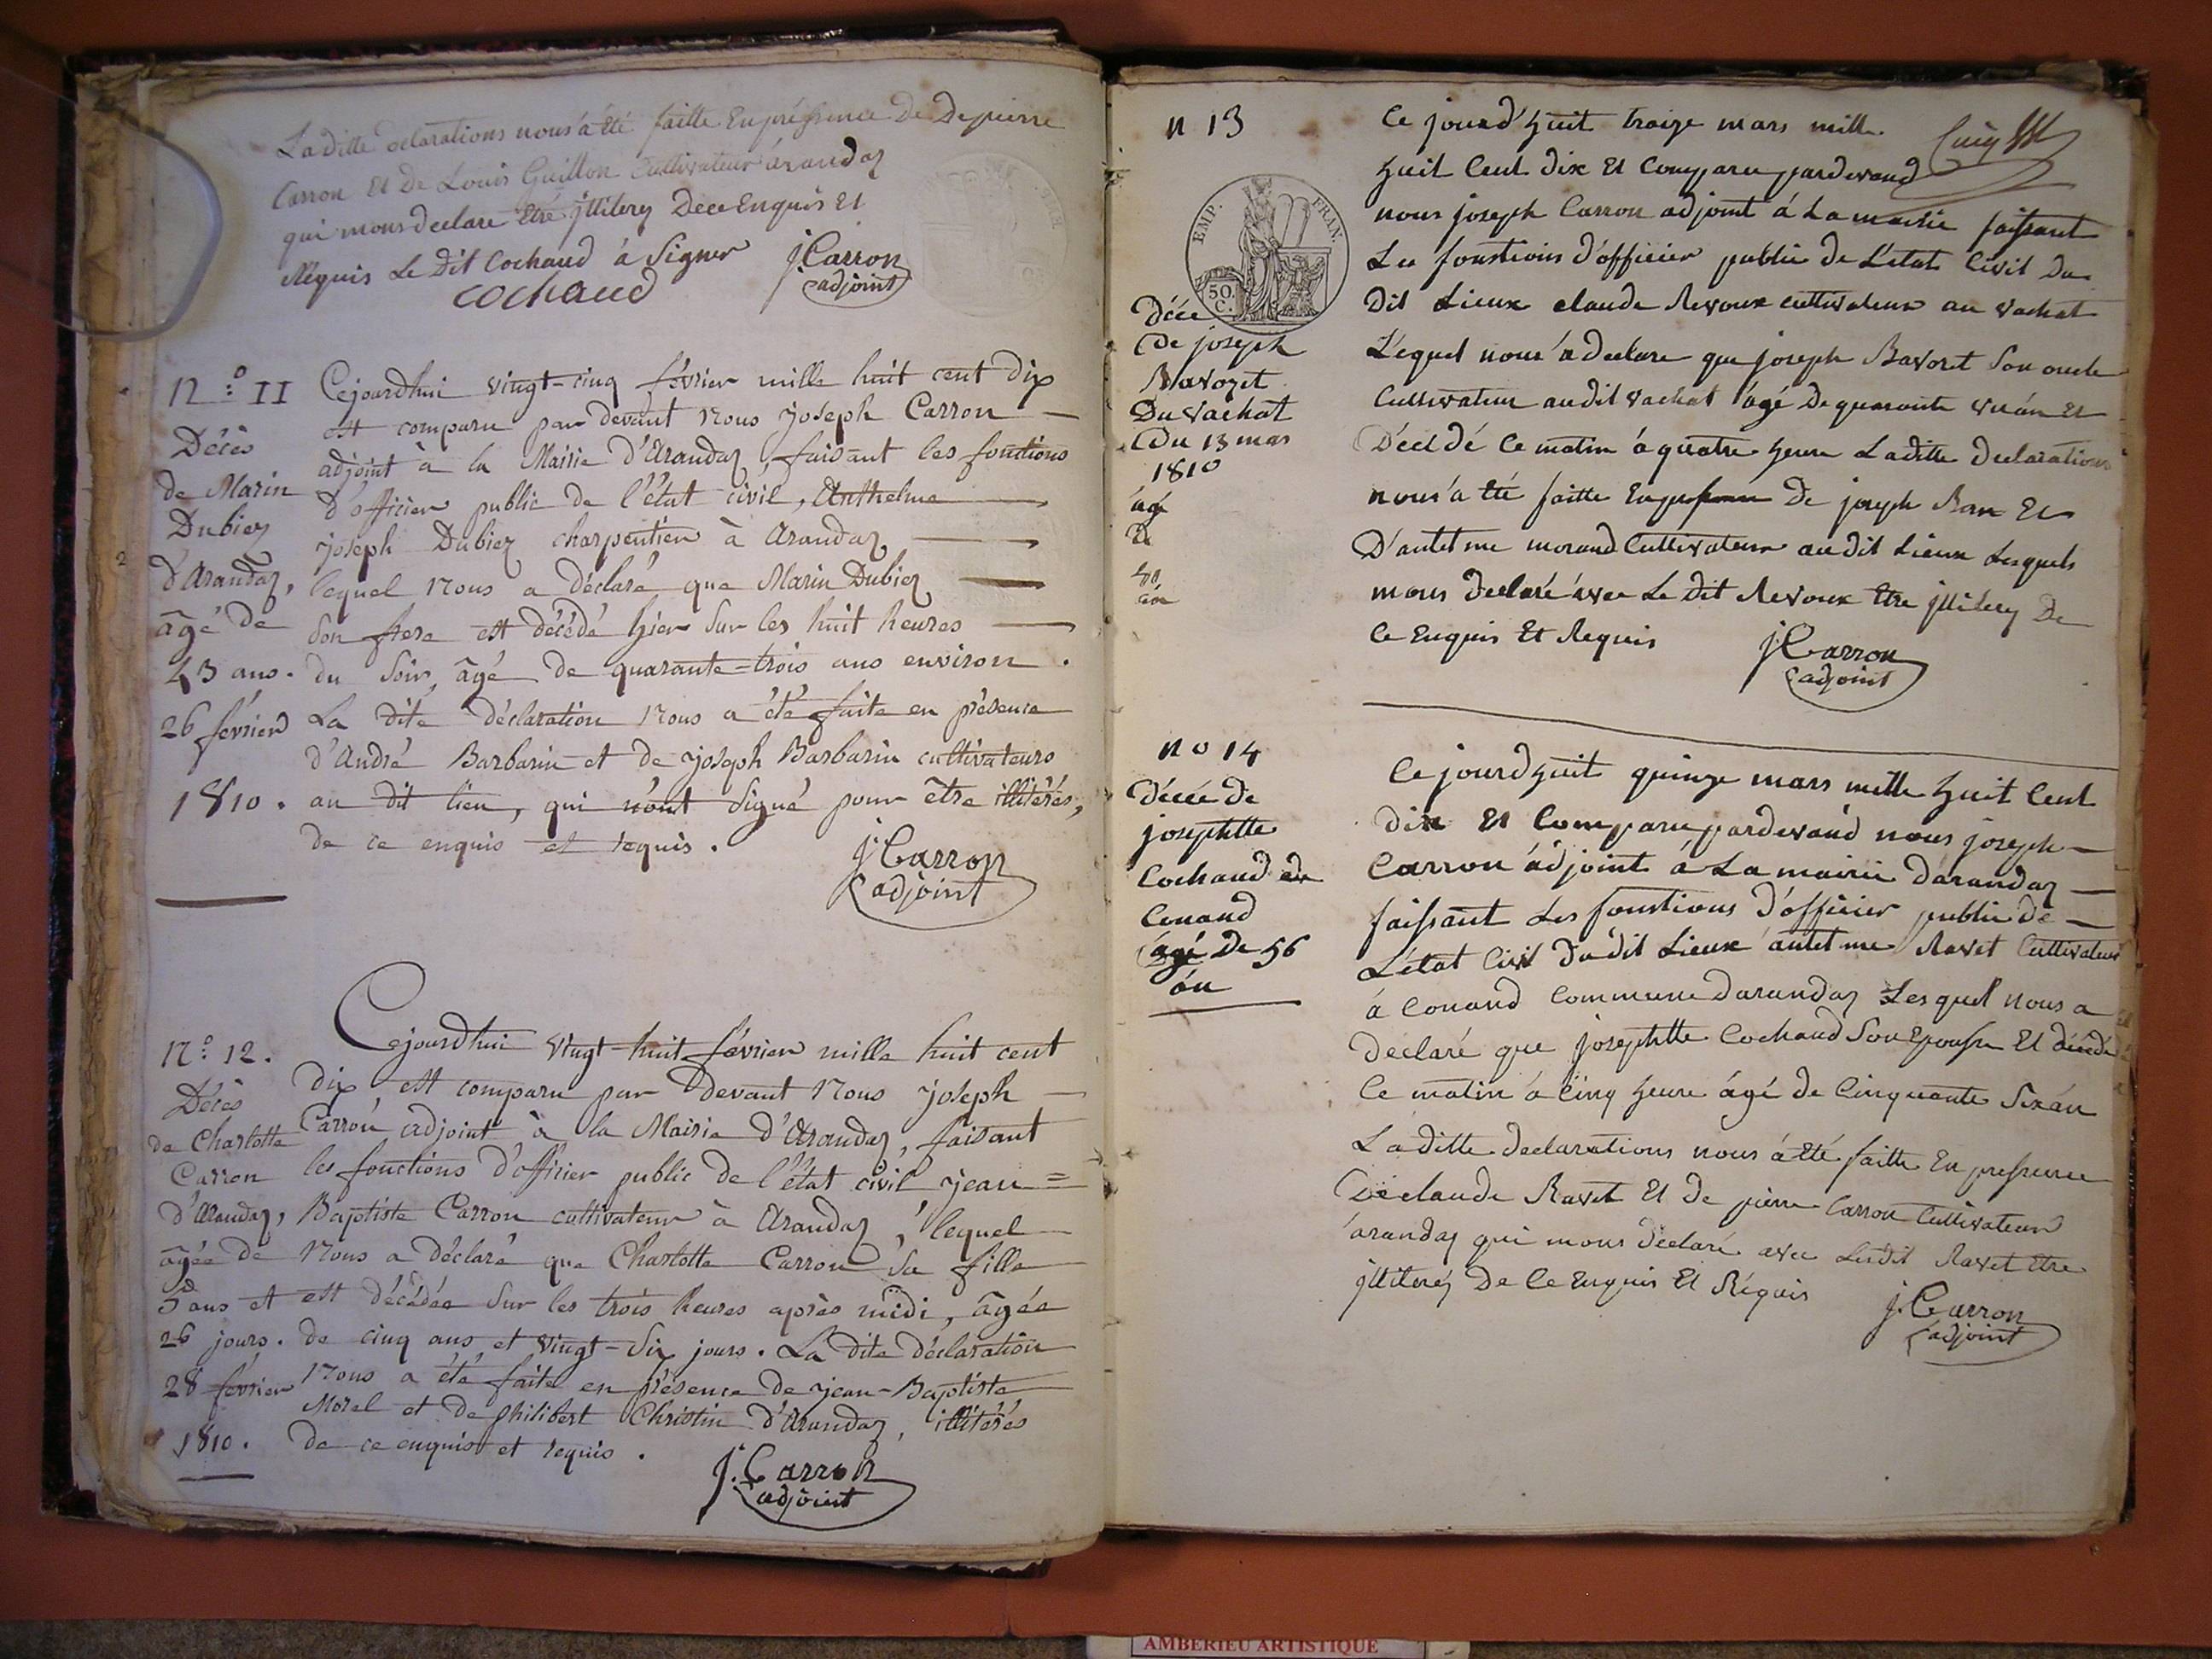 La ditte declarations nous a été faitte En présence De Depierre
Carron Et De Louis Guillon Cultivateur árandaz
qui mous declare Etre jllilerez Dece Enquis Et
Requis Le Dit Cochaud à Signer
J. Carron
adjoint
Cochaud
N.° 11
Décès
de Marin
Dubiez
d'Arandaz,
âgé de
43 ans.
26 février
1810.
Cejourdhui vingt-cinq février mille huit cent dix
est comparu par devant nous joseph Carron
adjoint à la Mairie d'Arandaz, faisant les fonctions
d'officier public de l'état civil, Anthelme
joseph Dubiez charpentier à Arandaz
lequel nous a déclaré que Marin Dubiez
son frere est décédé hier sur les huit heures
du soir, âgé de quarante-trois ans environ.
La dite déclaration nous a été faite en présence
d'André Barbarin et de joseph Barbarin cultivateurs
au dit lieu, qui n'ont signé pour être illitérés,
de ce enquis et requis.
J. Carron
adjoint
N.° 12.
Décès
de Charlotte
Carron
d'Arandaz,
âgée de
5 ans et
26 jours.
28 février
1810.
Cejourdhui vingt-huit février mille huit cent
dix est comparu par devant nous joseph
Carron adjoint à la Mairie d'Arandaz, faisant
les fonctions d'officier public de l'état civil jean=
Baptiste Carron cultivateur à Arandaz, lequel
nous a déclaré que Charlotte Carron sa fille
est décédée sur les trois heures après midi, âgée
de cinq ans et vingt-six jours. La dite déclaration
nous a été faite en présence de jean-Baptiste
Morel et de philibert Christin d'Arandaz, illitérés
de ce enquis et requis.
J. Carron
adjoint
n 13
EMP. FRAN.
50. C.
Décé
De joseph
Ravozet
Du vachat
Du 13 mars
1810
ágé
De
án
Ce jourd'huit traize mars mille
huit Cent dix Et Comparu pardevand
nous joseph Carron adjoint á La mairie faissant
Les fonstions d'officier public de L'etat Civil Du
Dit Lieux claude Revoux cultivateur au vachat
L'equel nous a declare que joseph Ravozet Son oncle
Cultivateur audit vachat ágé De quarante
Décédé Ce matin á quatre heure Laditte declarations
nous a été faitte En De joseph Ran Et
D'antelme morand Cultivateur au dit Lieux Lesquels
mous declaré avec Le Dit Revoux Etre jllilerez De
Ce Enquis Et Requis
J. Carron
adjoint
no 14
Décée de
josephtte
Cochaud de
Conand
ágé De 56
án
Ce jourdhuit quinze mars mille huit Cent
dix Et Comparu pardevand nous joseph
Carron ádjoint á La mairie darandaz
faissant Les fonstions d'officier public de
L'état Civil du dit Lieux antelme Ravet Cultivateur
á Conand Commune darandaz Lesquel nous a
declaré que josephtte Cochaud Son Epousse Et décédé
Ce matin á Cinq heure ágé de Cinquante Sixán
La ditte declarations nous a été faitte En pressence
De claude Ravet Et De pierre Carron Cultivateur
árandaz qui mous declaré avec Lesdit Ravet Etre
jllilerez De Ce Enquis Et Réquis
J. Carron
adjoint
AMBERIEU ARTISTIQUE